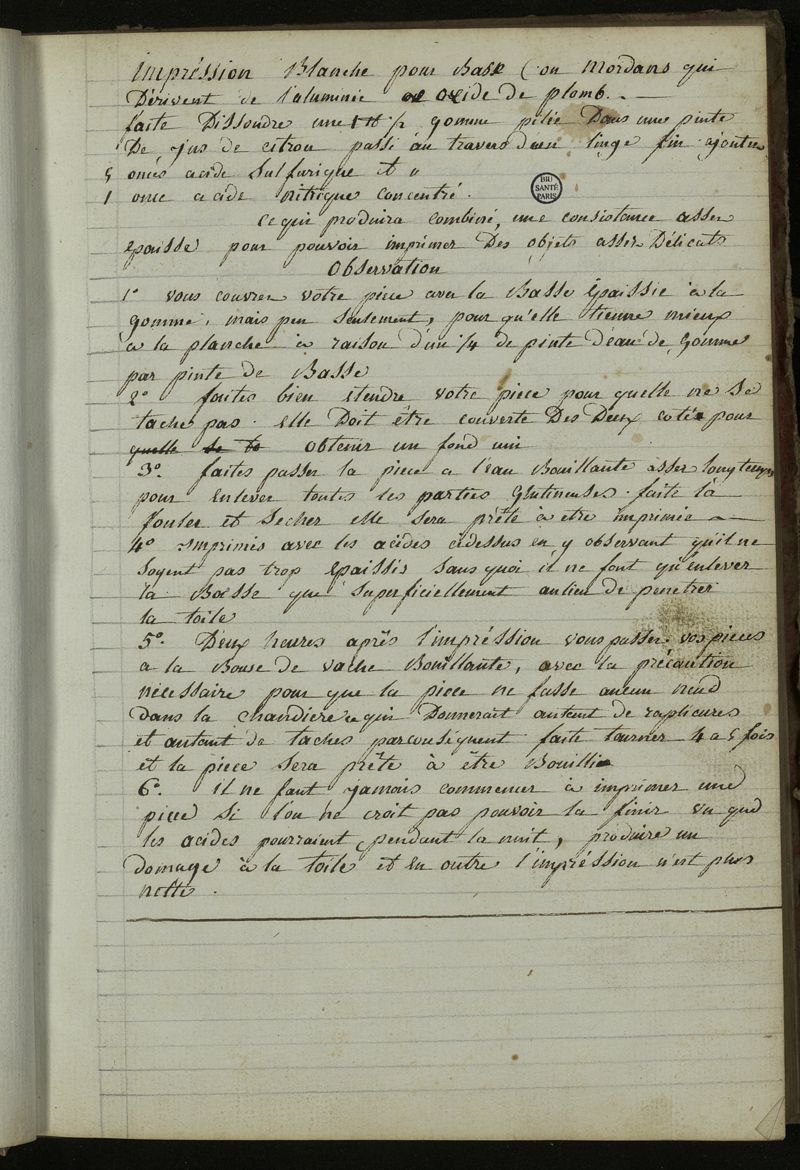 Impréssion Blanche pour Base (ou Mordans qui
Dérivent de l'alumine et oxide de plomb. -
faite Dissoudre une 1 ℔ ½ gomme pilée Dans une pinte
De jus de citron passé au travers d'un linge fin ajoutez
5 onces acide Sulfurique et "
1 once acide nitrique concentré.
BIU
SANTÉ
PARIS
ce qui produira combiné, une consistance asser
epaisse pour pouvoir imprimer Des objets asser Délicats
Observation
1° vous couvrer votre piece avec la Basse Epaissie à la
gomme, mais peu seulement, pour qu'elle tienne mieux
a la planche à raison d'un ¼ de pinte d'eau de Gomme
par pinte de Basse
2° faites bien etendre votre piece pour quelle ne se
tache pas. elle Doit être couverte Des Deux cotés pour
quelle se ta obtenir un fond uni
3°. faites passer la piece a l'eau Bouillante asser longtemps
pour enlever toutes les parties Glutineuses. faite la
fouler et secher elle sera prête à etre imprimée
4° Imprimés avec les acides cidessus en y observant qu'il ne
soyent pas trop epaissis sans quoi il ne font qu'enlever
la Basse que superficiellement aulieu de penetrer
la toile
5°. Deux heures après l'impréssion vous passer vos pieces
a la Bouse de vache Bouillante, avec la précaution
nécessaire pour que la piece ne fasse aucun neud
Dans la chaudiere ce qui Donnerait autant de raplicures
et autant de taches parconséquent faite tourner 4 a 5 fois
et la piece sera prête à être Bouillie
6°. il ne faut jamais commencer à imprimer une
piece si l'on ne croit pas pouvoir la finir vu que
les acides pourraient pendant la nuit, produire un
domage à la toile et en outre l'impréssion n'est plus
nette.